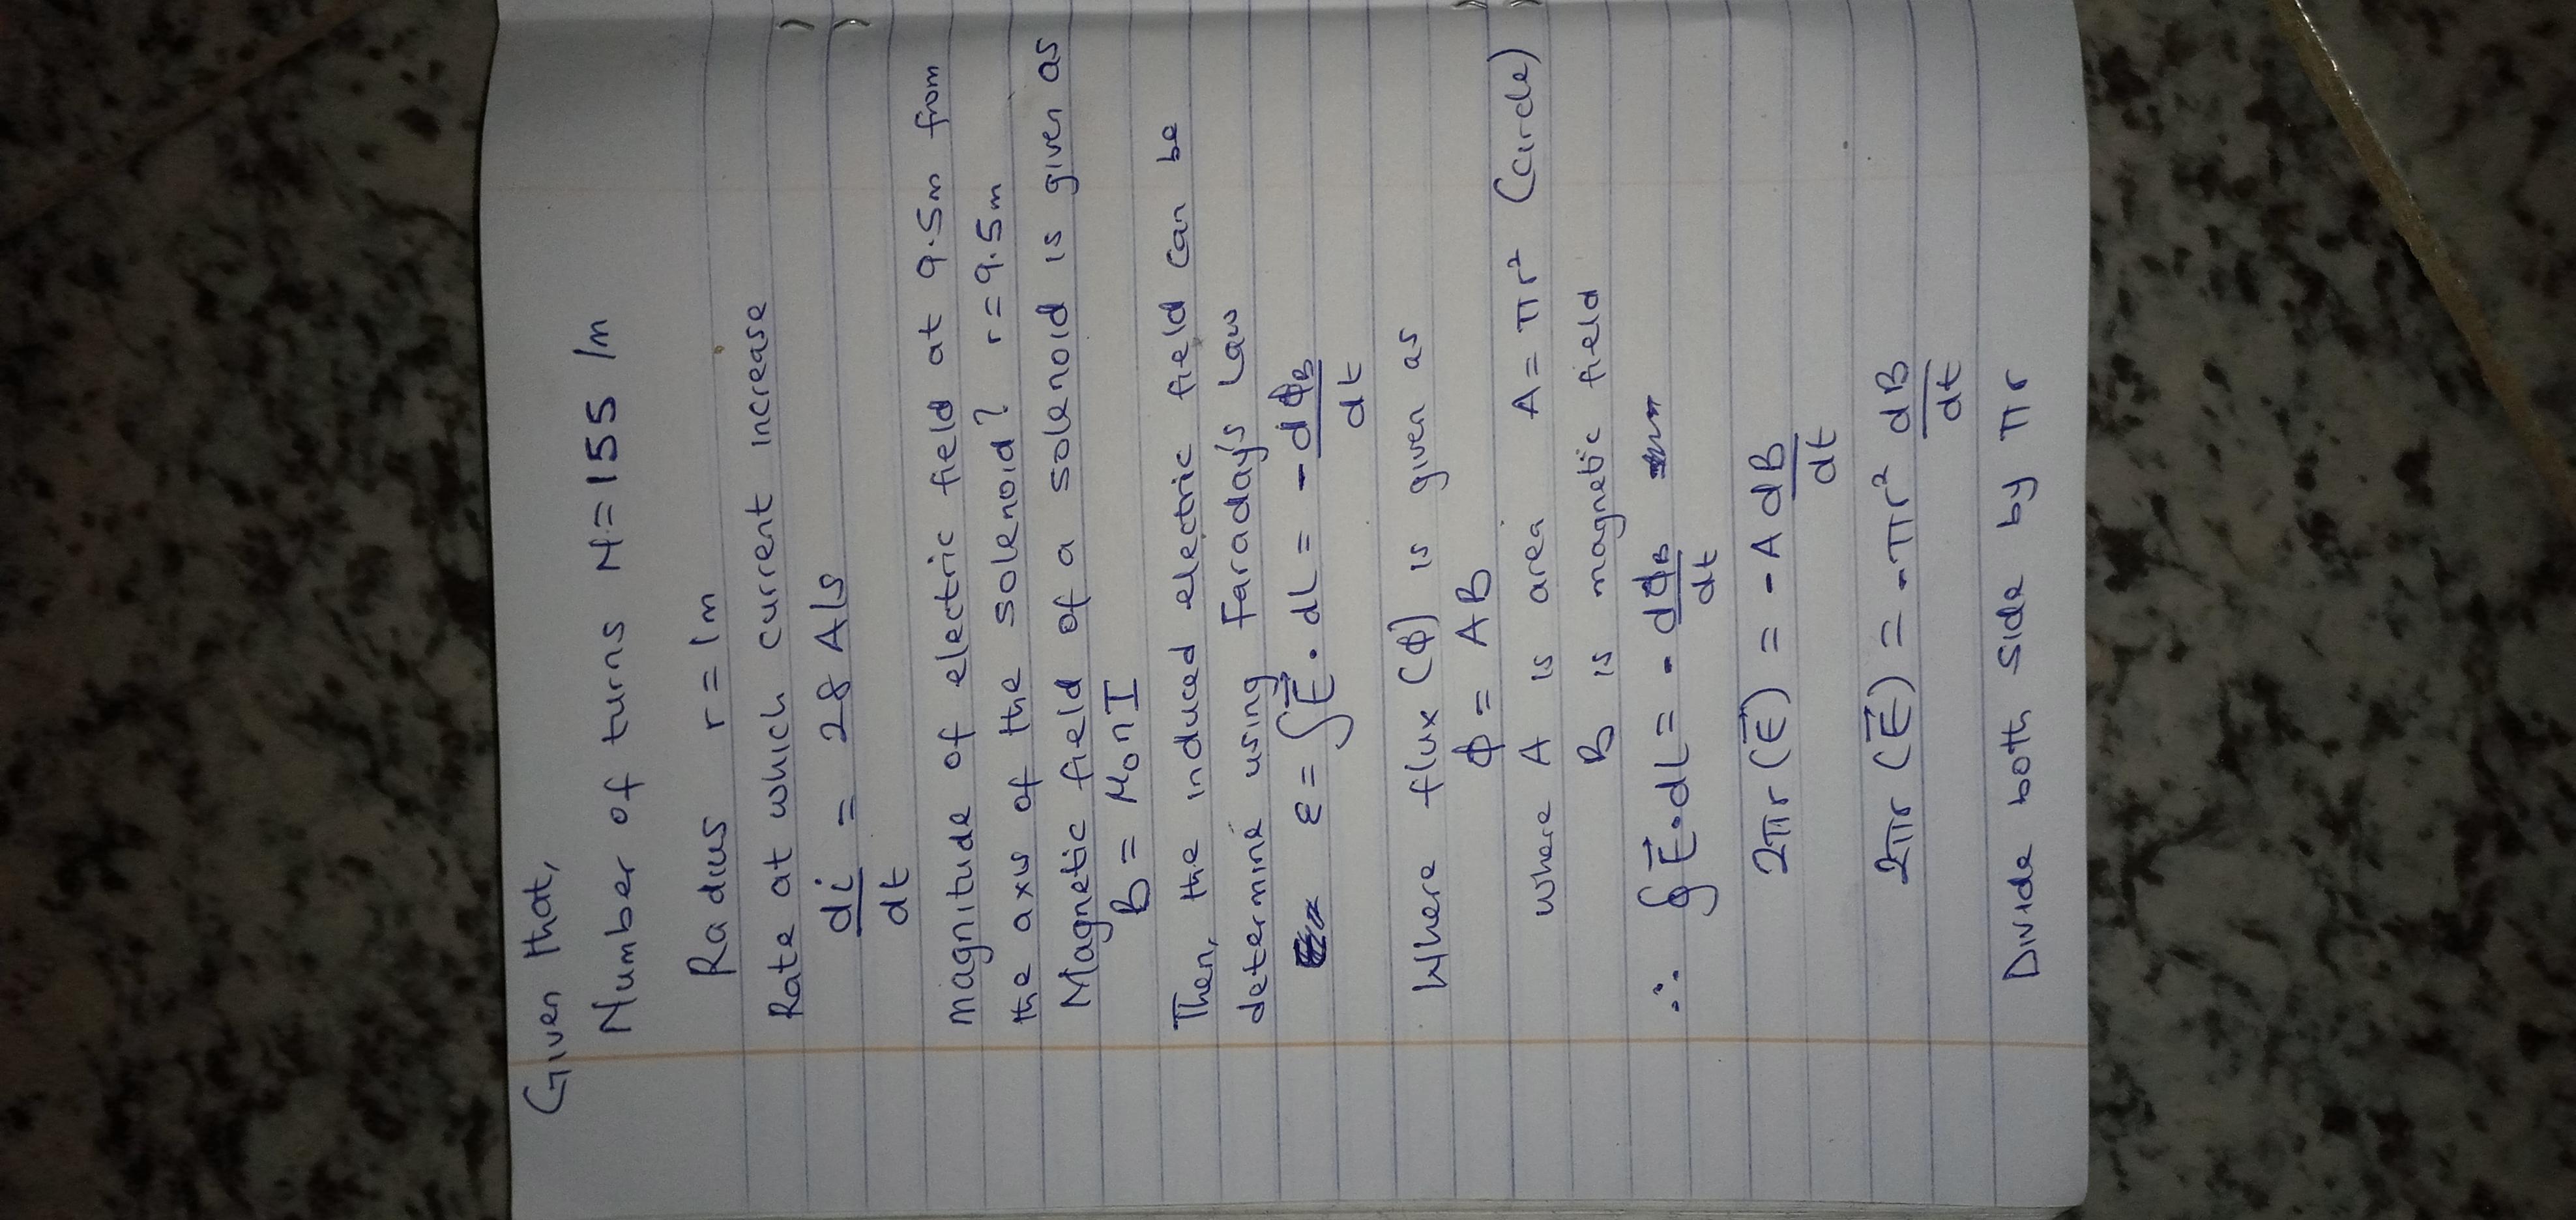 Given that,
Number of turns N=155 /m
Radius r=1m
Rate at which current increase
di/dt = 28 A/s
magnitude of electric field at 9.5m from
the axis of the solenoid? r=9.5m
Magnetic field of a solenoid is given as
B = μ₀nI
Then, the induced electric field can be
determine using Faraday's Law
ε = ∫E⃗.dL = -dΦB/dt
Where flux (ϕ) is given as
ϕ = AB
where A is area A = πr² (circle)
B is magnetic field
∴ ∮E⃗.dL = - dΦB/dt
2πr (E⃗) = -A dB/dt
2πr (E⃗) = -πr² dB/dt
Divide both side by πr